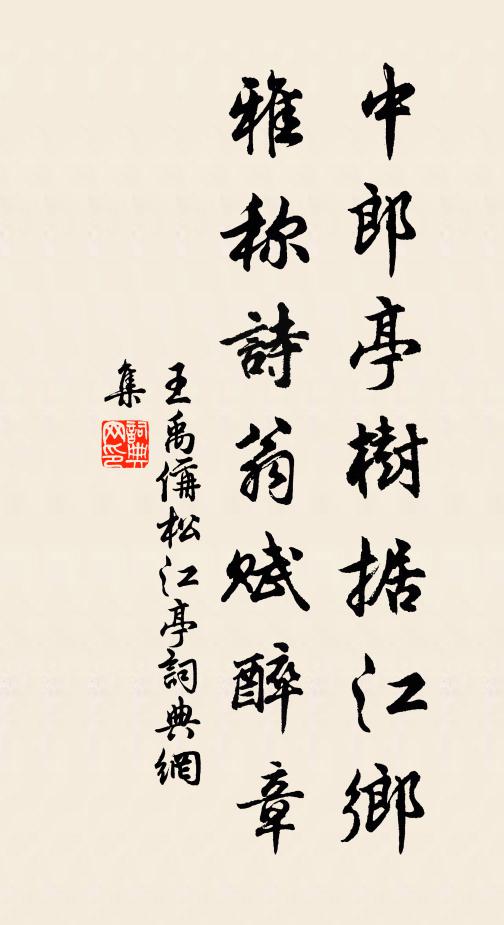 中郎亭樹据江鄉
雅称詩翁賦醉章
王禹偁松江亭詞典網
集
詞典
网印